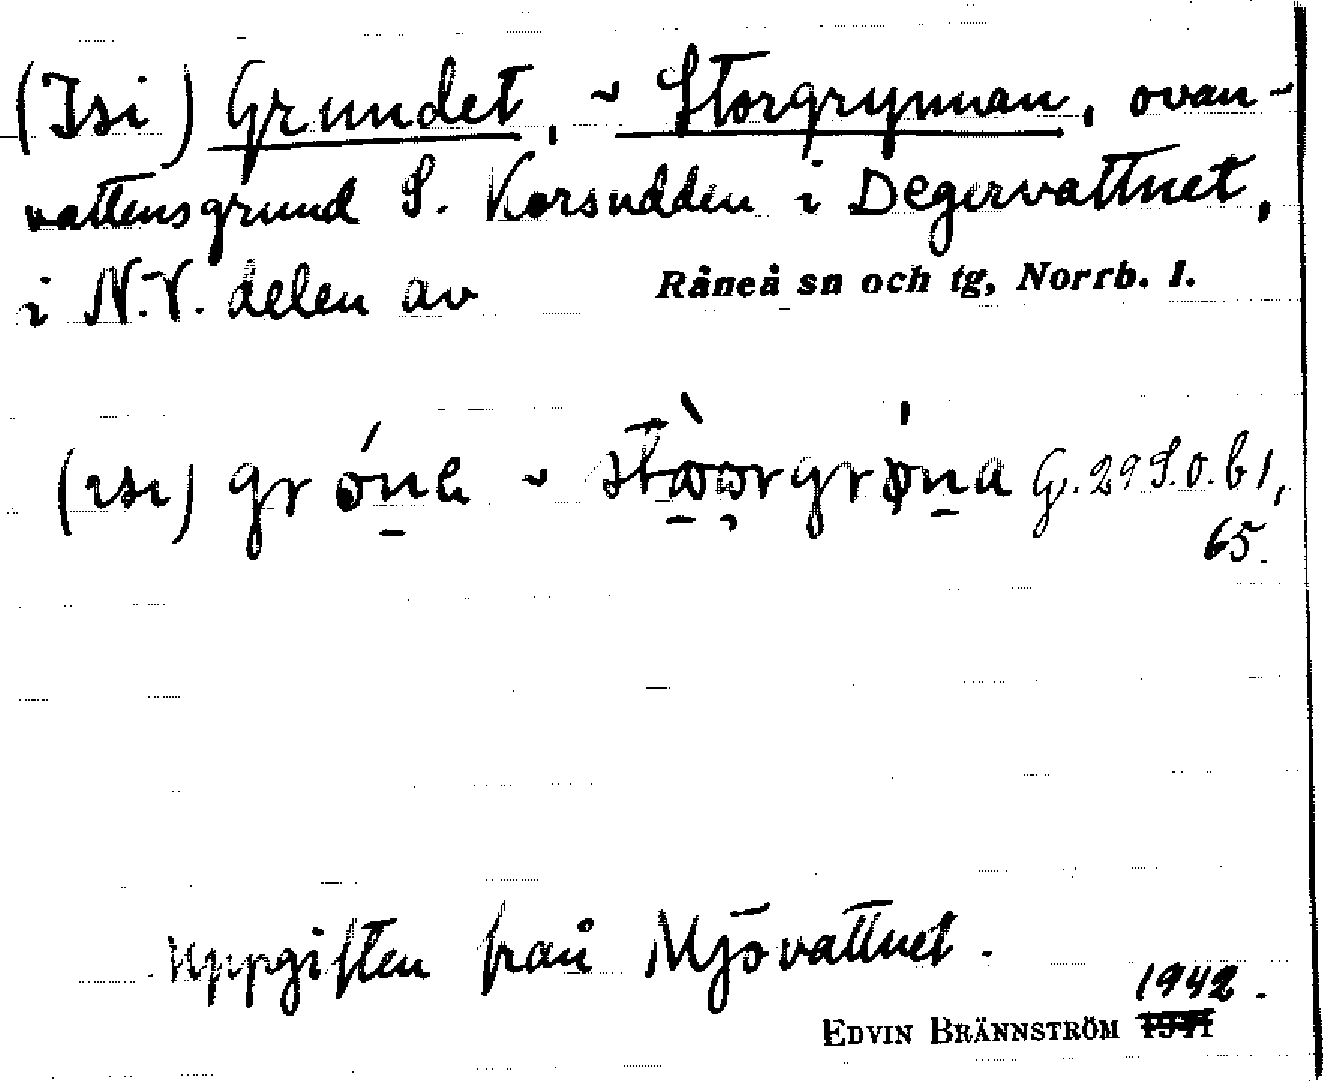 (Isi) Grundet, ~ Storgrynnan, ovan-
vattensgrund S. Korsudden i Degervattnet,
i N.V. delen av Råneå sn och tg, Norrb. l.
(ısı) gróne ~ stòorgróna G. 29 S.O. b 1,
65.
Uppgiften från Mjövattnet.
1942.
EDVIN BRÄNNSTRÖM 1941